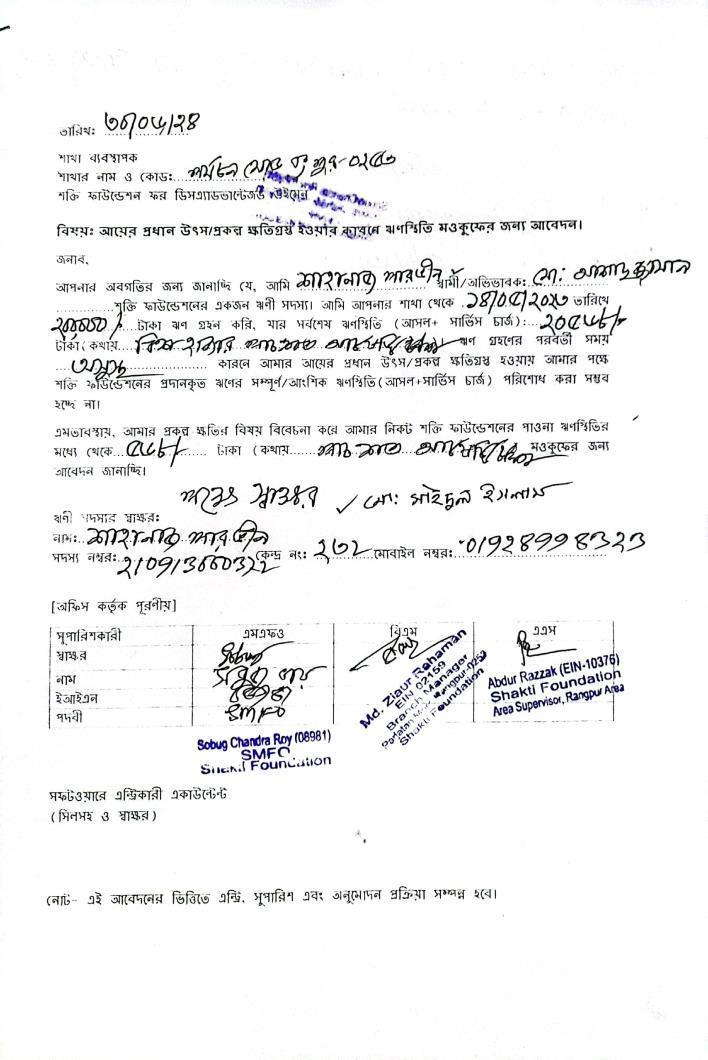 তারিখ: ৩০/০৫/২৪
শাখা ব্যবস্থাপক
শাখার নাম ও কোড: পর্যটন মোড় রংপুর-০২৫৩
শক্তি ফাউন্ডেশন ফর ডিসএ্যাডভান্টেজড উইমেন
বিষয়: আয়ের প্রধান উৎস/প্রকল্প ক্ষতিগ্রস্থ হওয়ার কারনে ঋণস্থিতি মওকুফের জন্য আবেদন।
জনাব,
আপনার অবগতির জন্য জানাচ্ছি যে, আমি শাহানাজ পারভীন স্বামী/অভিভাবক: মো: আসাদুজ্জামান
শক্তি ফাউন্ডেশনের একজন ঋণী সদস্য। আমি আপনার শাখা থেকে ১৪/০৫/২০২৩ তারিখে
টাকা ঋণ গ্রহন করি, যার সর্বশেষ ঋণস্থিতি (আসল+ সার্ভিস চার্জ): ২০৫৫৮/-
টাকা (কথায়: বিশ হাজার পাচ শত ঋণ গ্রহণের পরবর্তী সময়
অসুস্থ কারনে আমার আয়ের প্রধান উৎস/প্রকল্প ক্ষতিগ্রস্থ হওয়ায় আমার পক্ষে
শক্তি ফাউন্ডেশনের প্রদানকৃত ঋণের সম্পূর্ণ/আংশিক ঋণস্থিতি (আসল+সার্ভিস চার্জ) পরিশোধ করা সম্ভব
হচ্ছে না।
এমতাবস্থায়, আমার প্রকল্প ক্ষতির বিষয় বিবেচনা করে আমার নিকট শক্তি ফাউন্ডেশনের পাওনা ঋণস্থিতির
মধ্যে থেকে ৫৫৮/- টাকা (কথায় পাচ শত মওকুফের জন্য
আবেদন জানাচ্ছি।
স্বাক্ষর ✓ মো: সাইদুল ইসলাম
ঋণী সদস্যের স্বাক্ষর:
নাম: শাহানাজ পারভীন
সদস্য নম্বর: কেন্দ্র নং: ২৩২ মোবাইল নম্বর: 01928998323
[অফিস কর্তৃক পূরণীয়]
সুপারিশকারী এমএফও বিএম এএস
স্বাক্ষর
নাম সবুজ চন্দ্র রায়
ইআইএন
পদবী SMFO
Sobug Chandra Roy (08981)
SMFO
Shakti Foundation
Md. Ziaur Rahaman
EIN 02159
Branch Manager
Shakti Foundation
Abdur Razzak (EIN-10376)
Shakti Foundation
Area Supervisor, Rangpur Area
সফটওয়ারে এন্ট্রিকারী একাউন্টেন্ট
(সিলসহ ও স্বাক্ষর)
নোট- এই আবেদনের ভিত্তিতে এন্ট্রি, সুপারিশ এবং অনুমোদন প্রক্রিয়া সম্পন্ন হবে।